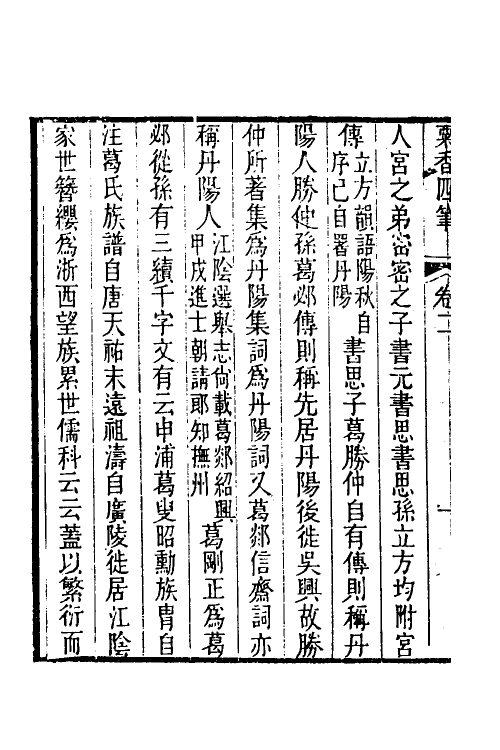 粟香四筆　卷二
人宮之弟密密之子書元書思書思孫立方均附宮
傳立方韻語陽秋自序已自署丹陽書思子葛勝仲自有傳則稱丹
陽人勝仲孫葛邲傳則稱先居丹陽後徙吳興故勝
仲所著集爲丹陽集詞爲丹陽詞又葛郯信齋詞亦
稱丹陽人江陰選舉志尙載葛郯紹興甲戌進士朝請郎知撫州葛剛正爲葛
邲從孫有三續千字文有云申浦葛叟昭勳族胄自
注葛氏族譜自唐天祐末遠祖濤自廣陵徙居江陰
家世簪纓爲浙西望族累世儒科云云蓋以繁衍而